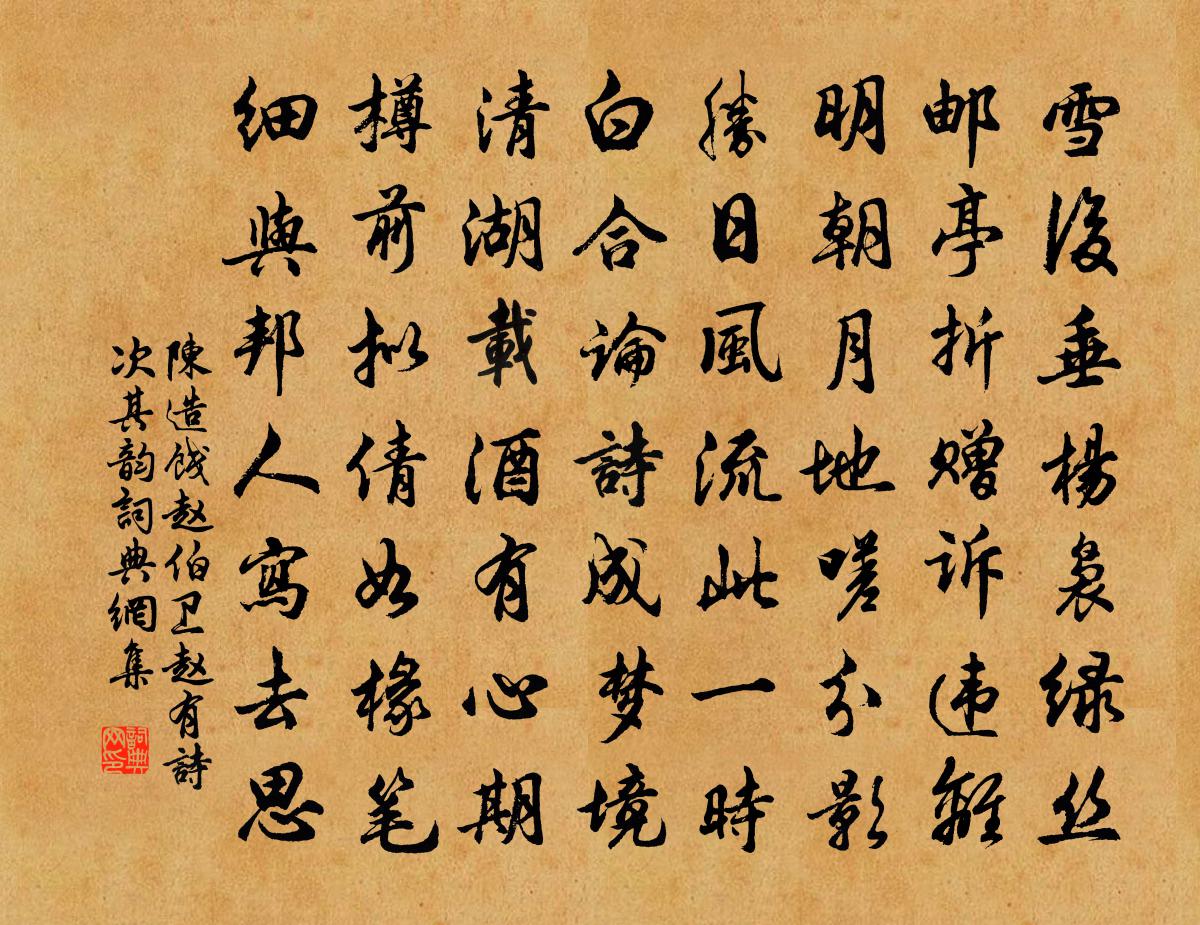 雪後垂楊裊绿丝
邮亭折赠诉违離
明朝月地嗟分影
勝日風流此一時
白合論詩成梦境
清湖載酒有心期
樽前拟倩如椽笔
细與邦人寫去思
陳造餞赵伯卫赵有詩
次其韵詞典網集
詞典
网印